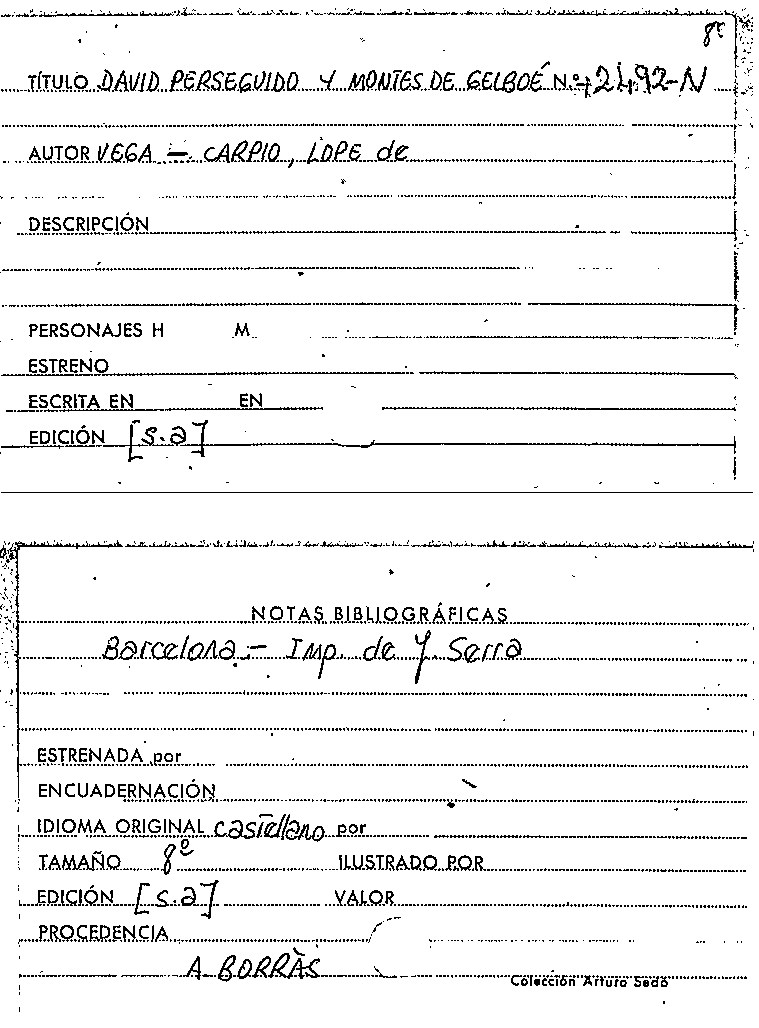 8º
TÍTULO DAVID PERSEGUIDO Y MONTES DE GELBOÉ N.º 42492-N
AUTOR VEGA - CARPIO, LOPE de
DESCRIPCIÓN
PERSONAJES H M
ESTRENO
ESCRITA EN EN
EDICIÓN [s.a]
NOTAS BIBLIOGRÁFICAS
Barcelona.- Imp. de Y. Serra
ESTRENADA por
ENCUADERNACIÓN
IDIOMA ORIGINAL castellano por
TAMAÑO 8º ILUSTRADO POR
EDICIÓN [s.a] VALOR
PROCEDENCIA
A. BORRÀS
Colección Arturo Sedó